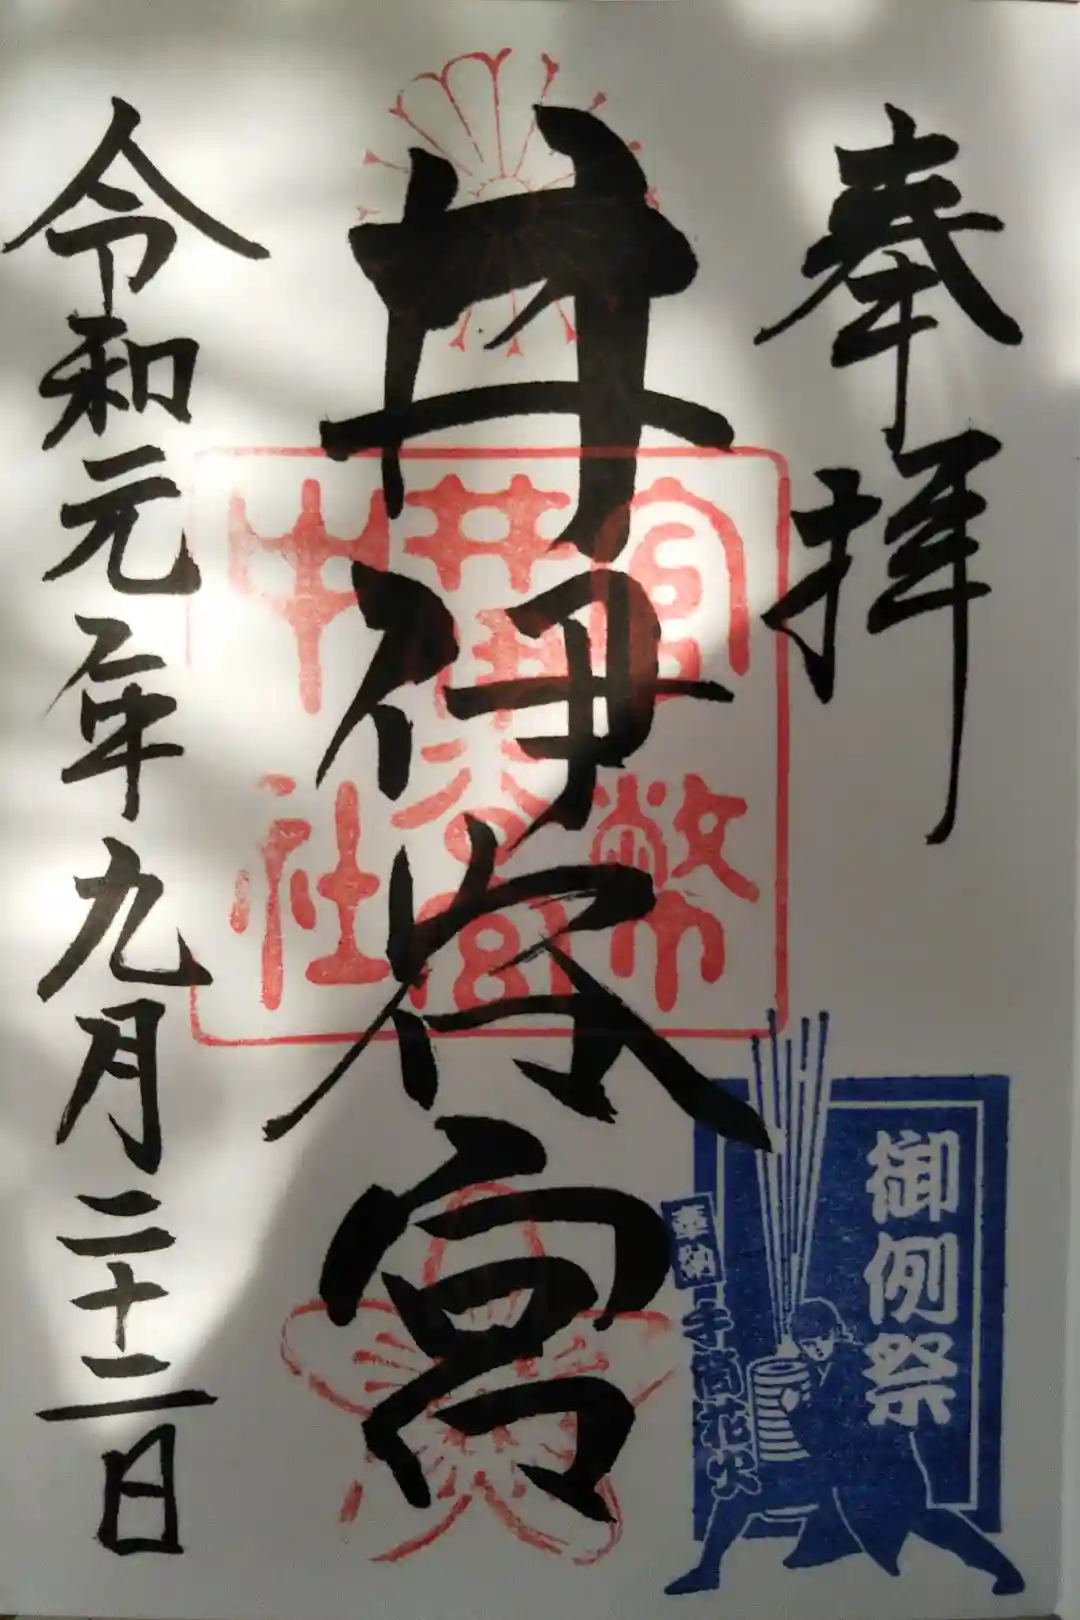 奉拝
井伊谷宮
令和元年九月二十二日
官幣
中社
御例祭
奉納
手筒花火